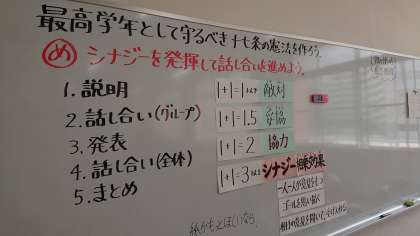 最高学年として守るべき十七条の憲法を作ろう。
め シナジーを発揮して話し合いを進めよう。
1. 説明
2. 話し合い(グループ)
3. 発表
4. 話し合い(全体)
5. まとめ
1+1=1以下 敵対
1+1=1.5 妥協
1+1=2 協力
1+1=3以上 シナジー 相乗効果
一人一人が意見をもつ
ゴールを思い描く
紙がもっとほしいなら、